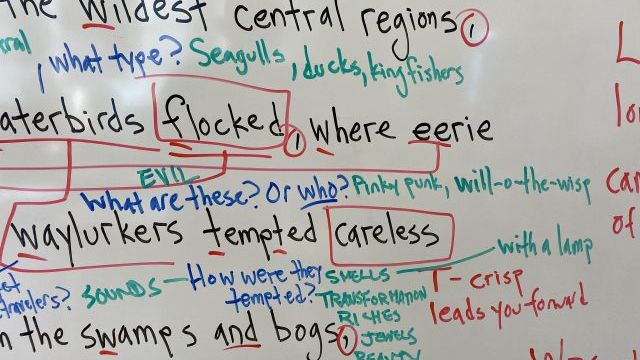 the wildest central regions,
, what type? Seagulls, ducks, kingfishers
aterbirds flocked, where eerie
EVIL
What are these? Or who? Pinky punk, will-o-the-wisp
waylurkers tempted careless
with a lamp
travelers? SOUNDS — How were they tempted? SMELLS
TRANSFORMATION
RICHES
JEWELS
BEAUTY
T - crisp
leads you forward
n the swamps and bogs,
of